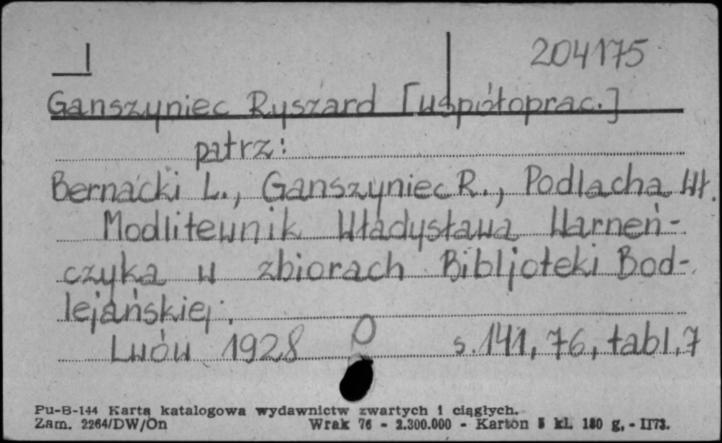 204175
Ganszyniec Ryszard [współoprac.]
patrz:
Bernacki L., Ganszyniec R., Podlacha Wł.
Modlitewnik Władysława Warneń-
czyka w zbiorach Bibljoteki Bod-
lejańskiej.
Lwów 1928 s. 141, 76, tabl. 7
Pu-B-144 Karta katalogowa wydawnictw zwartych i ciągłych.
Zam. 2264/DW/On Wrak 76 - 2.300.000 - Karton 5 kl. 180 g, - II73.